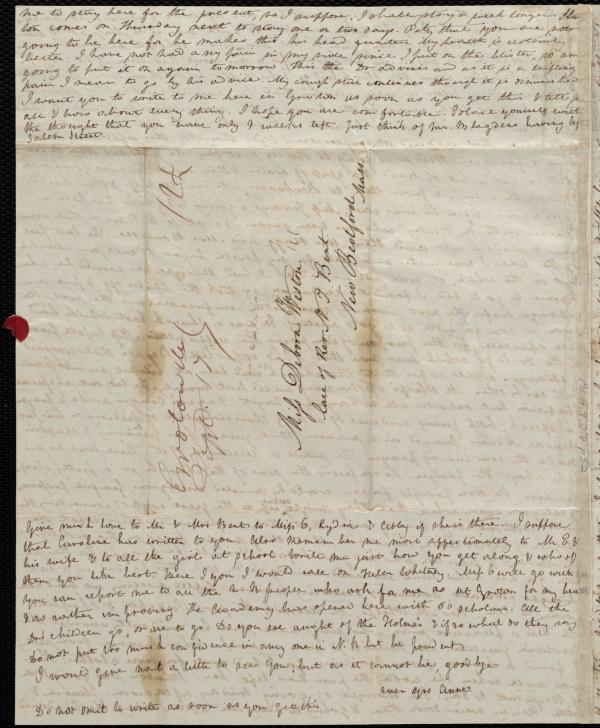 me to stay here for the present, so I suppose, I shall stay a week longer.
ton comes on Thursday next to stay one or two days. Pity that you are not
going to be here for he makes this his head quarters. My health is
better. I have not had any pain in my side since I put on the blister, so am
going to put it on again tomorrow. This the Dr advises and as it is a trifling
pain I mean to go by his advice. My cough still continues though it is
I want you to write to me here in Groton as soon as you get this & tell
all & more about every thing. I hope you are comfortable. Solace yourself with
the thought that you have only 9 weeks left. Just think of Mr. Blagden having left
Salem Street.
12½
Groton Ms
Sept. 17
Miss Debora Weston
Care of Rev. N. T. Bent
New Bedford
Mass.
Give much love to Mr & Mrs Bent to Miss G, Lydia & Abby if she is there. I suppose
that Caroline has written to you. Also remember me most affectionately to Mr E &
his wife & to all the girls at school. Write me just how you get along & who of
them you like best. Were I you I would call on Whitney. Miss G will go with
you can report me to all the N B people who ask for me as at Groton for my health
& as rather improving. The Academy has opened here with 60 scholars. All the
Drs children go, or are to go. Do you see aught of the Holmes & if so what do they say
Do not put too much confidence in any one in N. B but be prudent.
I would give not a little to see you, but as it cannot be, goodbye
ever yrs Anne.
Do not omit to write as soon as you get this